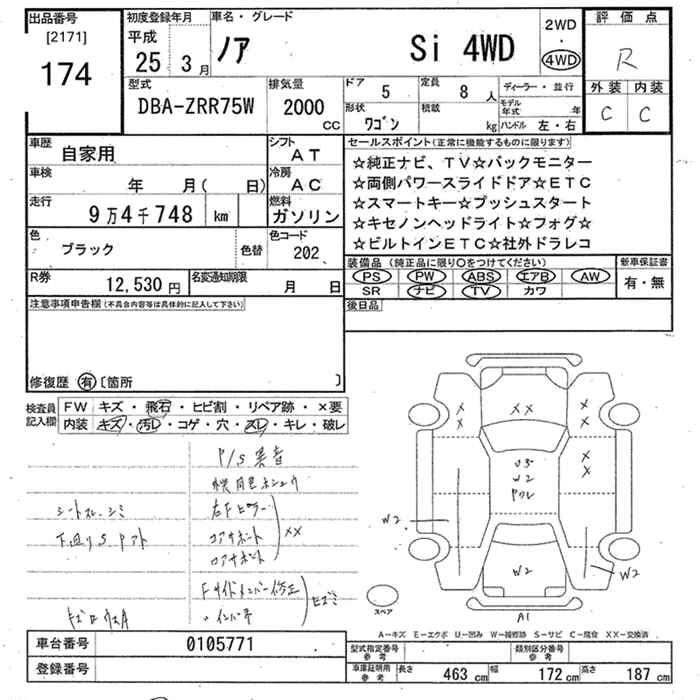 出品番号
[2171]
174
初度登録年月
平成
25年 3月
車名・グレード
ノア Si 4WD
2WD
・
4WD
評価点
R
外装 内装
C C
型式
DBA-ZRR75W
排気量
2000
cc
ドア 5
定員 8人
ディーラー・並行
形状
ワゴン
積載
kg
モデル年式 年
ハンドル 左・右
車歴
自家用
シフト
AT
車検
年 月( 日)
冷房
AC
走行
9万4千748 km
燃料
ガソリン
色
ブラック
色替
色コード
202
R券
12,530円
名変通知期限
月 日
セールスポイント(正常に機能するものに限ります)
☆純正ナビ、TV☆バックモニター
☆両側パワースライドドア☆ETC
☆スマートキー☆プッシュスタート
☆キセノンヘッドライト☆フォグ☆
☆ビルトインETC☆社外ドラレコ
装備品(純正品に限り○をつけてください)
PS PW ABS エアB AW
SR ナビ TV カワ
新車保証書
有・無
後日品
注意事項申告欄(不具合内容等は具体的に記入して下さい)
修復歴 有 〔箇所 〕
検査員記入欄
FW キズ・飛石・ヒビ割・リペア跡・×要
内装 キズ・汚レ・コゲ・穴・スレ・キレ・破レ
P/S異音
シートスレ、シミ
下廻りSワフト
右Fピラー
コアサポート
××
Fサイドメンバー修正
インパネ
ヒズミ
××
×
×
×
×
×
×
U3
W2
ワレ
W2
W2
W2
A1
スペア
A-キズ E-エクボ U-凹み W-補修跡 S-サビ C-腐食 XX-交換済
車台番号
0105771
登録番号
型式指定番号参考
類別区分番号参考
車庫証明用参考
長さ 463cm
幅 172cm
高さ 187cm